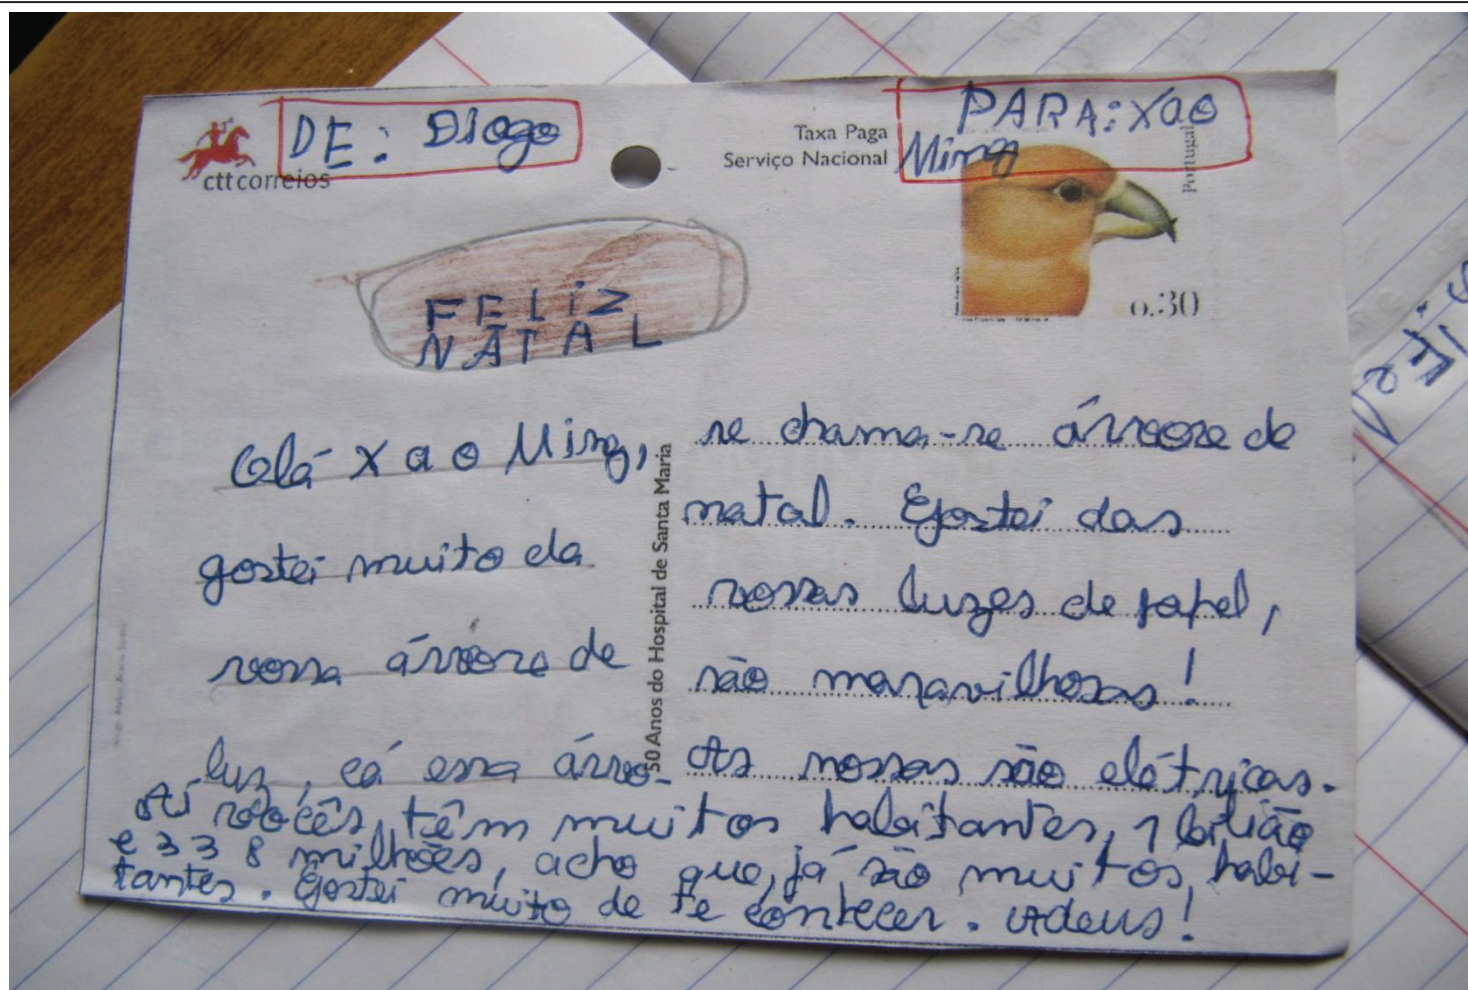 DE: Diogo
ctt correios
Taxa Paga
Serviço Nacional
PARA: Xao
Ming
Portugal
0.30
FELiZ
NATAL
Olá Xao Ming,
gostei muito da
vossa árvore de
luz, cá essa árvo-
50 Anos do Hospital de Santa Maria
re chama-se árvore de
natal. Gostei das
vossas luzes de papel,
são maravilhosas!
As nossas são elétricas.
Aí vocês têm muitos habitantes, 1 bilião
e 338 milhões, acho que já são muitos habi-
tantes. Gostei muito de te conhecer. Adeus!